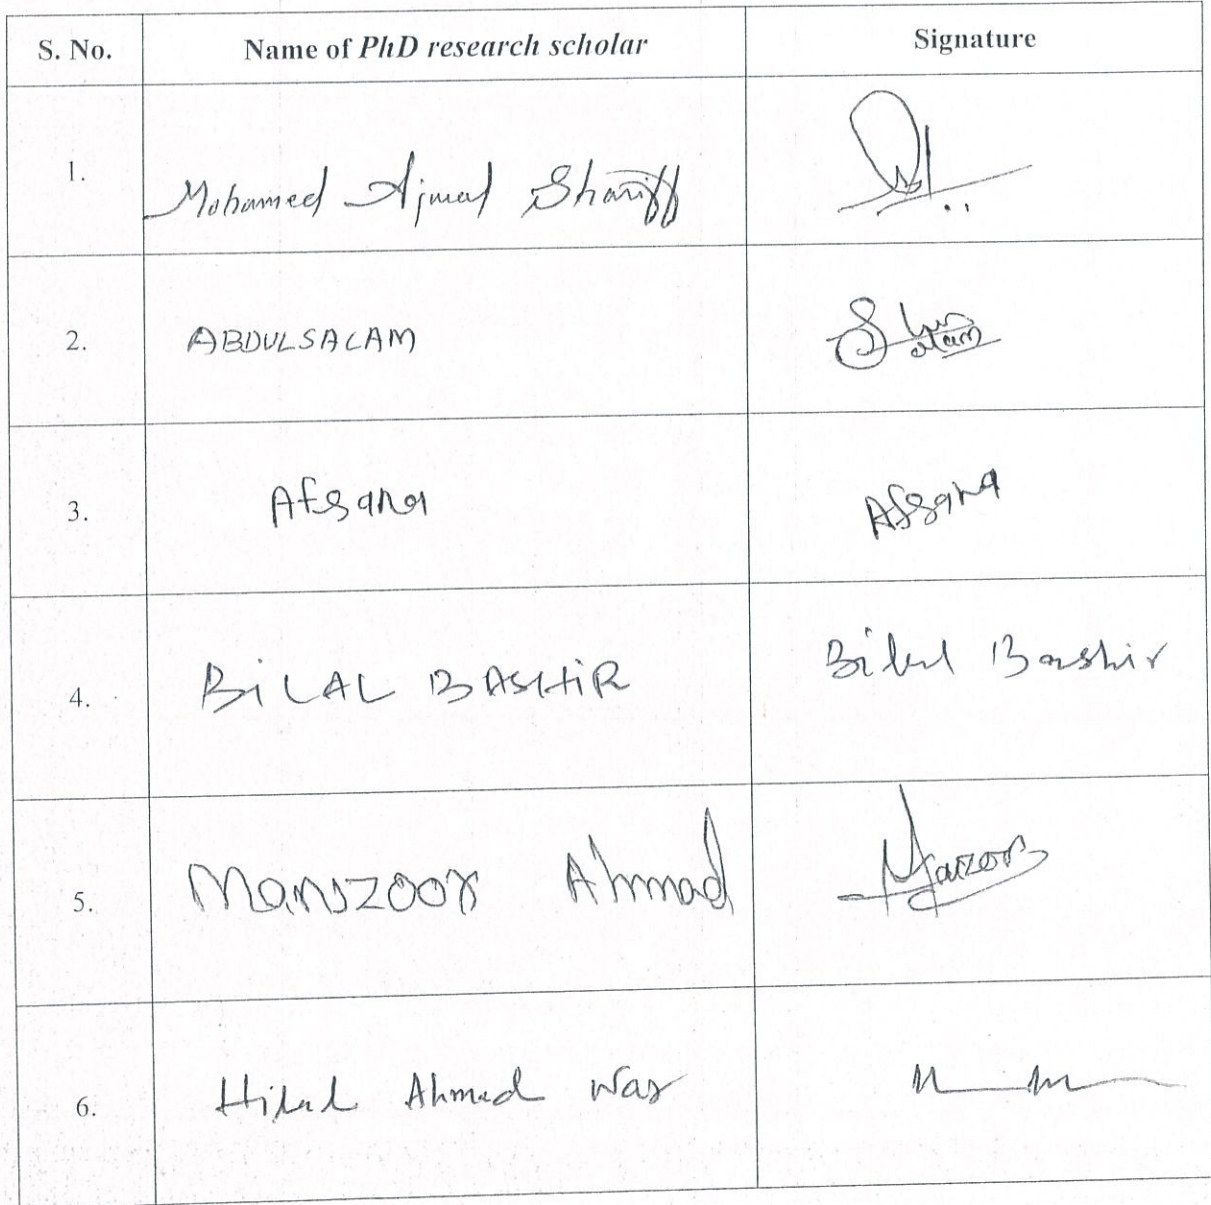 S. No. Name of PhD research scholar Signature
1. Mohamed Ajmal Shariff
2. ABDULSALAM
3. Afsana Afsana
4. BiLAL BASHiR Bilal Bashir
5. Manzoor Ahmad
6. Hilal Ahmed War